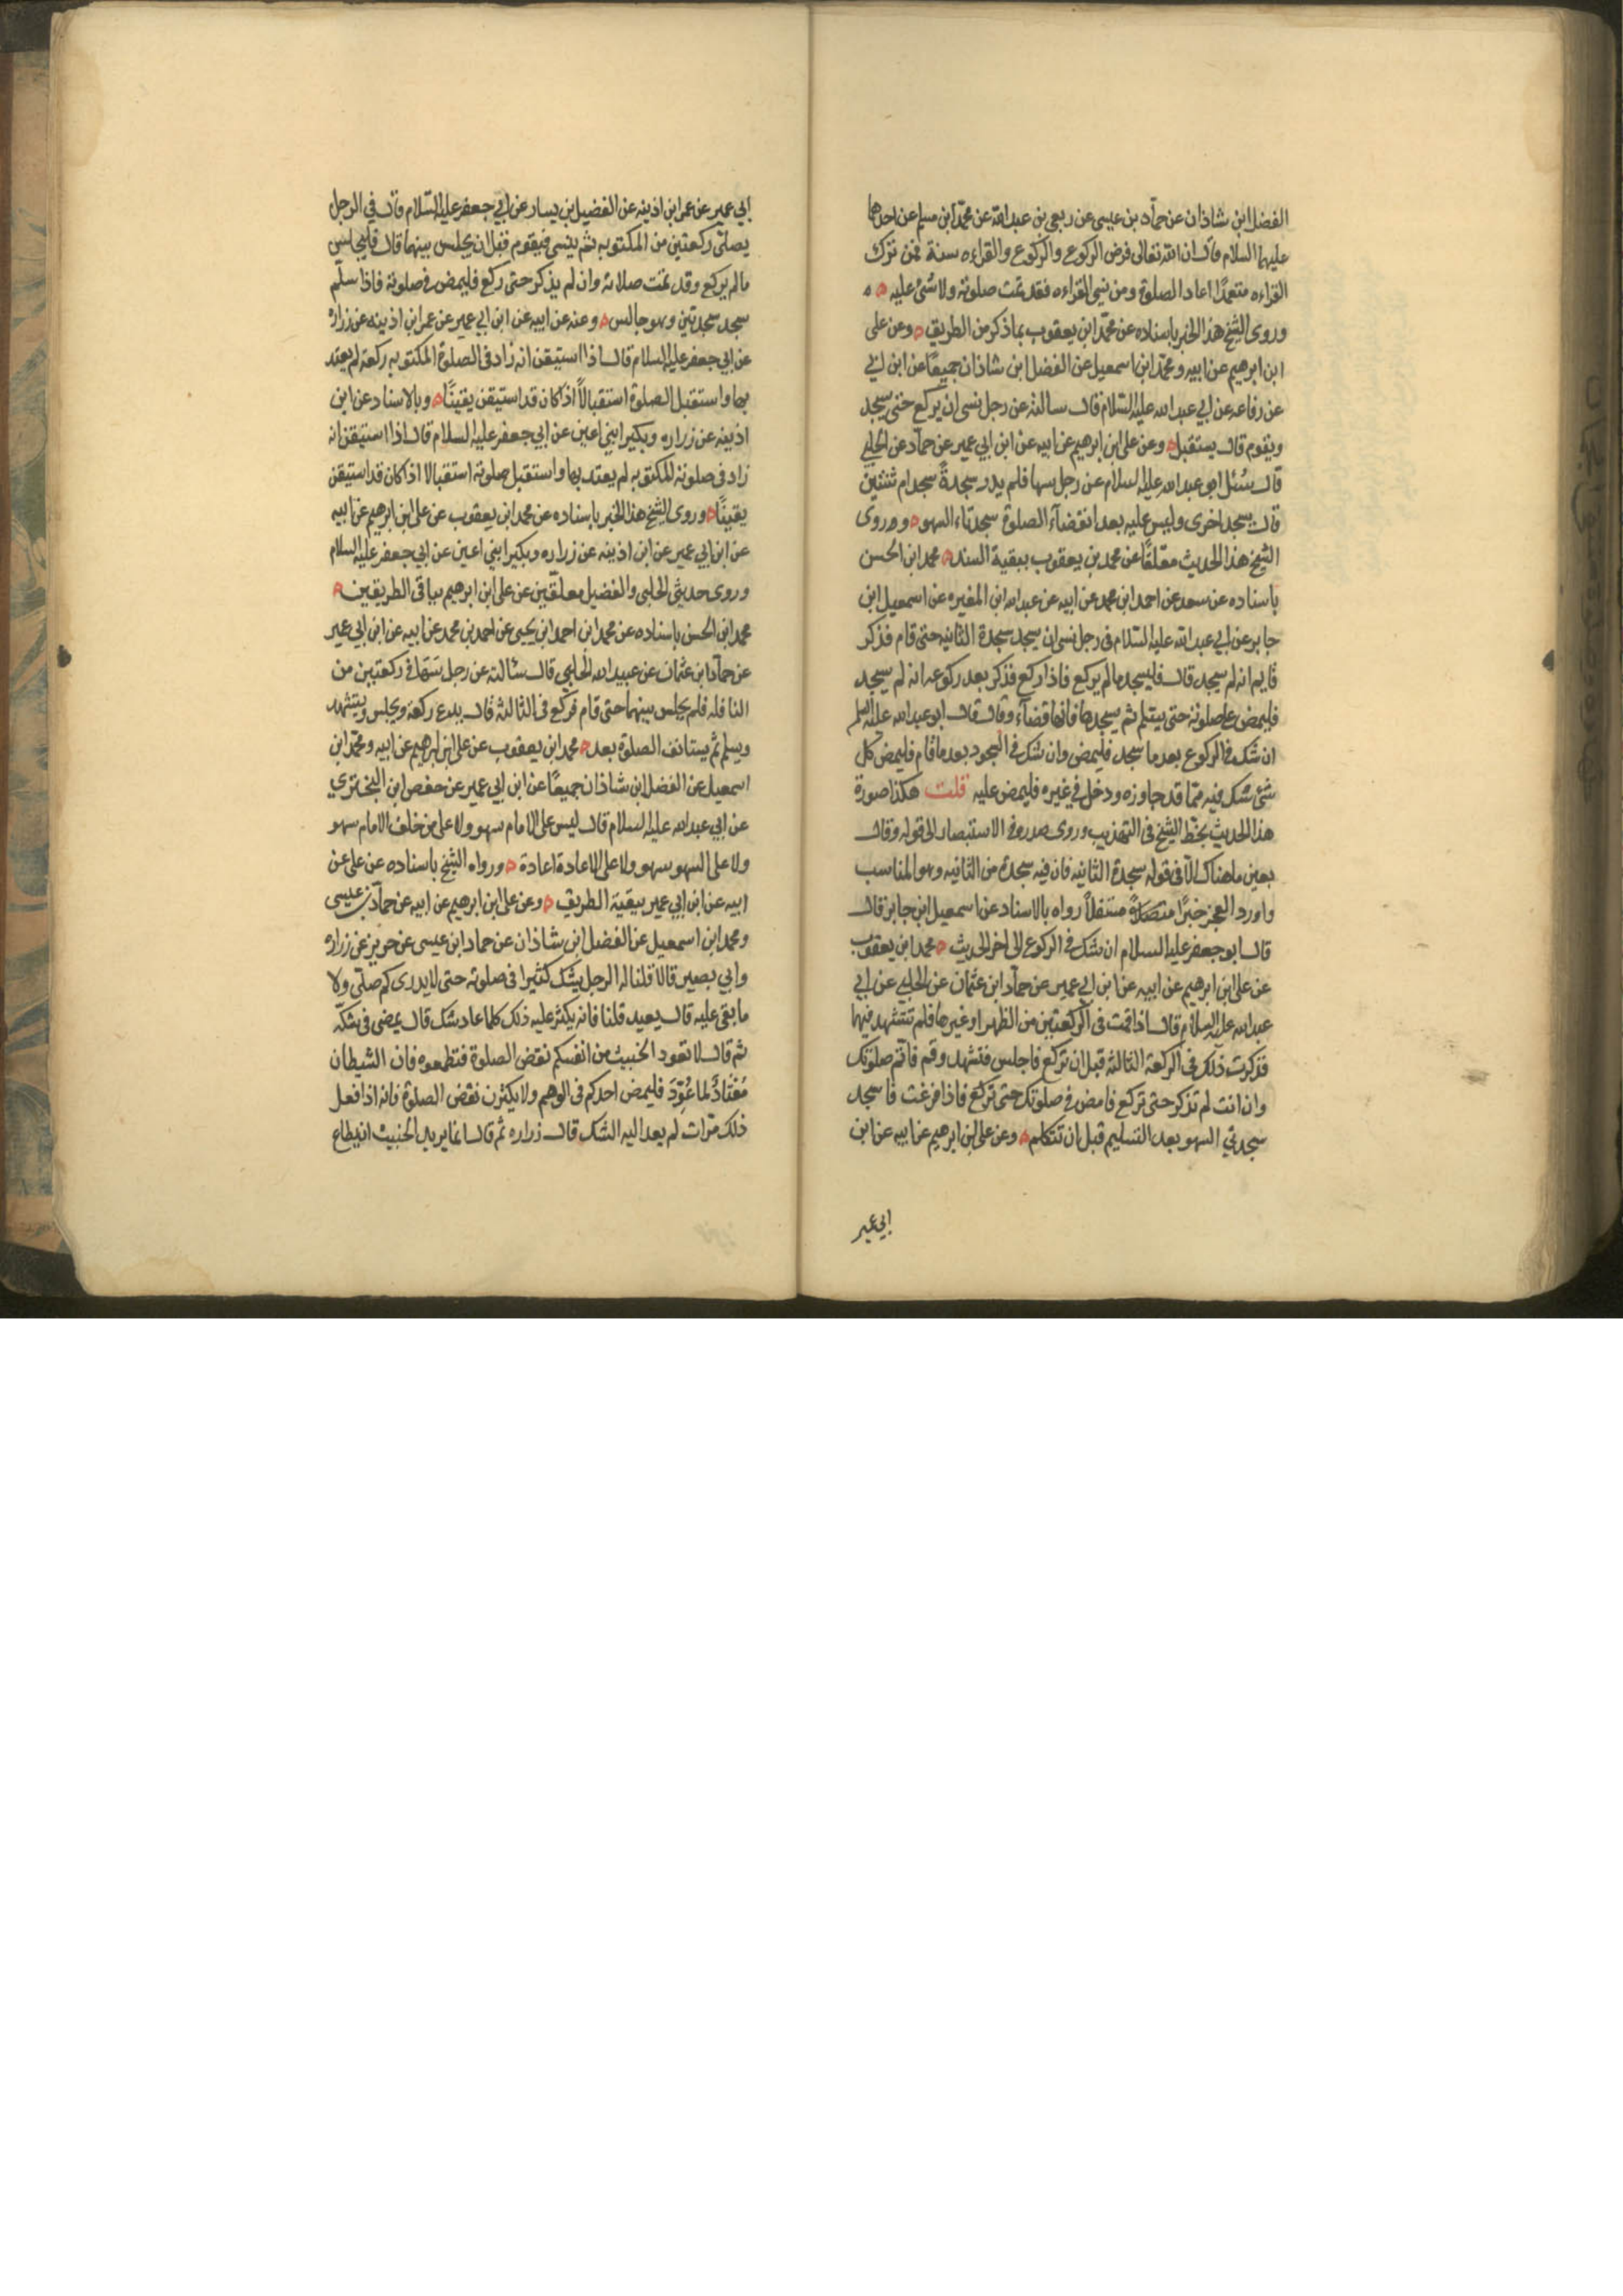 الفضل ابن شاذان عن حماد بن عيسى عن ربعي بن عبد الله عن محمد ابن مسلم عن احدهما
عليهما السلام قال ان الله تعالى فرض الركوع والركوع والقراءه سنة فمن ترك
القراءه متعمدًا اعاد الصلوة ومن نسي القراءه فقد تمت صلوته ولا شئ عليه ه ه
وروى الشيخ هذا الخبر باسناده عن محمد ابن يعقوب بما ذكر من الطريق ه وعن على
ابن ابرهيم عن ابيه ومحمد ابن اسمعيل عن الفضل ابن شاذان جميعًا عن ابن ابي
عن رفاعه عن ابي عبد الله عليه السلام قال سالته عن رجل نسى ان يركع حتى يسجد
ويقوم قال يستقبل ه وعن على ابن ابرهيم عن ابيه عن ابن ابي عمير عن حماد عن الحلبي
قال سُئل ابو عبد الله عليه السلام عن رجل سها فلم يدر سجدةً سجد ام ثنتين
قال يسجد اخرى وليس عليه بعد انقضآء الصلوة سجدتاء السهو ه وروى
الشيخ هذا الحديث معلقًا عن محمد بن يعقوب ببقية السند ه محمد ابن الحسن
باسناده عن سعد عن احمد ابن محمد عن ابيه عن عبد الله ابن المغيره عن اسمعيل ابن
جابر عن ابي عبد الله عليه السلام فى رجل نسى ان يسجد سجدة الثانيه حتى قام فذكر
قايم انه لم يسجد قال فليسجد مالم يركع فاذا ركع فذكر بعد ركوعه انه لم يسجد
فليمض على صلوته حتى يسلم ثم يسجدها فانها قضآء وقال قال ابو عبد الله عليه السلم
ان شك فى الركوع بعد ما سجد فليمض وان شك فى السجود بعد ما قام فليمض كل
شئ شك فيه مما قد جاوزه ودخل في غيره فليمض عليه قلت هكذا صورة
هذا الحديث بخط الشيخ فى التهذيب وروى صدره فى الاستبصار الى قوله وقال
بعين ما هناك الا فى قوله سجدة الثانيه فان فيه سجدة من الثانيه وهو المناسب
واورد العجز خبرًا متصلاً مستقلاً رواه بالاسناد عن اسمعيل ابن جابر قال
قال ابو جعفر عليه السلام ان شك في الركوع الى اخر الحديث ه محمد ابن يعقوب
عن على ابن ابرهيم عن ابيه عن ابن ابي عمير عن حماد ابن عثمان عن الحلبي عن ابي
عبد الله عليه السلام قال اذا قمت فى الركعتين من الظهر او غيرها فلم تتشهد فيهما
فذكرت ذلك فى الركعة الثالثة قبل ان تركع فاجلس فتشهد وقم فاتم صلوتك
وان انت لم تذكر حتى تركع فامض في صلوتك حتى تركع فاذا فرغت فاسجد
سجدتي السهو بعد التسليم قبل ان تتكلم ه وعن على ابن ابرهيم عن ابيه عن ابن
ابي عمير
ابي عمير عن عمر ابن اذينه عن الفضيل بن يسار عن ابي جعفر عليه السلام قال في الرجل
يصلى ركعتين من المكتوبه ثم ينسى فيقوم قبل ان يجلس بينهما قال فليجلس
مالم يركع وقد تمت صلاته وان لم يذكر حتى ركع فليمض في صلوته فاذا سلم
سجد سجدتين وهو جالس ه وعنه عن ابيه عن ابن ابي عمير عن عمر ابن اذينه عن زراره
عن ابي جعفر عليه السلام قال اذا استيقن انه زاد فى الصلوة المكتوبه ركعة لم يعتد
بها واستقبل الصلوة استقبالاً اذا كان قد استيقن يقينًا ه وبالاسناد عن ابن
اذينه عن زراره وبكير ابني اعين عن ابي جعفر عليه السلام قال اذا استيقن انه
زاد فى صلوته المكتوبه لم يعتد بها واستقبل صلوته استقبالا اذا كان قد استيقن
يقينًا ه وروى الشيخ هذا الخبر باسناده عن محمد ابن يعقوب عن على ابن ابرهيم عن ابيه
عن ابن ابي عمير عن ابن اذينه عن زراره وبكير ابني اعين عن ابي جعفر عليه السلام
وروى حديثى الحلبى والفضيل معلقين عن على ابن ابراهيم بباقى الطريقين ه
محمد ابن الحسن باسناده عن محمد ابن احمد ابن يحيى عن احمد بن محمد عن ابيه عن ابن ابي عمير
عن حماد ابن عثمان عن عبيد الله الحلبي قال سئالته عن رجل سها في ركعتين من
النافله فلم يجلس بينهما حتى قام فركع فى الثالثه قال يدع ركعة ويجلس ويتشهد
ويسلم ثم يستانف الصلوة بعد ه محمد ابن يعقوب عن على ابن ابرهيم عن ابيه ومحمد ابن
اسمعيل عن الفضل ابن شاذان جميعًا عن ابن ابي عمير عن حفص ابن البختري
عن ابي عبد الله عليه السلام قال ليس على الامام سهو ولا على من خلف الامام سهو
ولا على السهو سهو ولا على الاعادة اعادة ه ورواه الشيخ باسناده عن على عن
ابيه عن ابن ابي عمير ببقية الطريق ه وعن على ابن ابرهيم عن ابيه عن حماد بن عيسى
ومحمد ابن اسمعيل عن الفضل ابن شاذان عن حماد ابن عيسى عن حريز عن زراره
وابي بصير قالا قلنا له الرجل يشك كثيرا فى صلوته حتى لا يدرى كم صلى ولا
ما بقى عليه قال يعيد قلنا فانه يكثر عليه ذلك كلما عاد شك قال يمضى فى شكه
ثم قال لا تعود الخبيث من انفسكم نقض الصلوة فتطمعوه فان الشيطان
مُعْتَادٌ لما عُوِّدَ فليمض احدكم فى الوهم ولا يكثرن نقض الصلوة فانه اذا فعل
ذلك مرات لم يعد اليه الشك قال زراره ثم قال انما يريد الخبيث ان يطاع